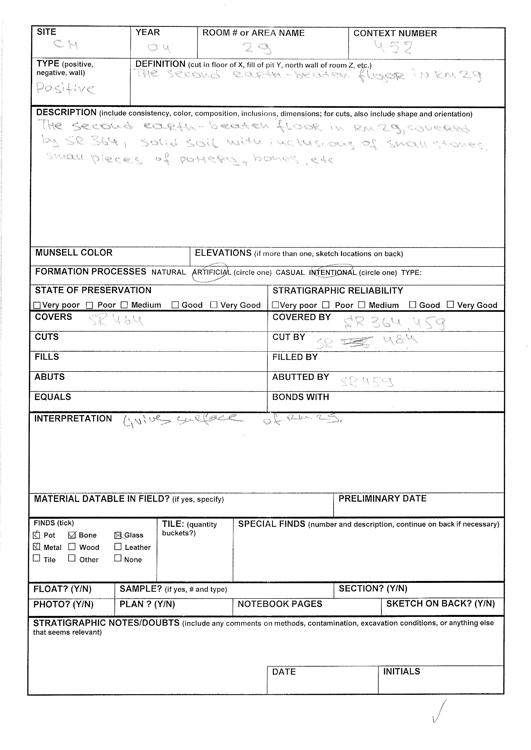 SITE YEAR ROOM # or AREA NAME CONTEXT NUMBER
CH 04 29 452
TYPE (positive, negative, wall) DEFINITION (cut in floor of X, fill of pit Y, north wall of room Z, etc.)
Positive The second earth-beaten floor in RM29
DESCRIPTION (include consistency, color, composition, inclusions, dimensions; for cuts, also include shape and orientation)
The second earth-beaten floor in RM 29, covered
by SR 364, solid soil with inclusions of small stones,
small pieces of pottery, bones, etc
MUNSELL COLOR ELEVATIONS (if more than one, sketch locations on back)
FORMATION PROCESSES NATURAL ARTIFICIAL (circle one) CASUAL INTENTIONAL (circle one) TYPE:
STATE OF PRESERVATION STRATIGRAPHIC RELIABILITY
Very poor Poor Medium Good Very Good Very poor Poor Medium Good Very Good
COVERS SR 464 COVERED BY SR 364, 459
CUTS CUT BY SR 484
FILLS FILLED BY
ABUTS ABUTTED BY SR 459
EQUALS BONDS WITH
INTERPRETATION living surface of RM 29.
MATERIAL DATABLE IN FIELD? (if yes, specify) PRELIMINARY DATE
FINDS (tick) TILE: (quantity buckets?) SPECIAL FINDS (number and description, continue on back if necessary)
Pot Bone Glass
Metal Wood Leather
Tile Other None
FLOAT? (Y/N) SAMPLE? (if yes, # and type) SECTION? (Y/N)
PHOTO? (Y/N) PLAN ? (Y/N) NOTEBOOK PAGES SKETCH ON BACK? (Y/N)
STRATIGRAPHIC NOTES/DOUBTS (include any comments on methods, contamination, excavation conditions, or anything else
that seems relevant)
DATE INITIALS